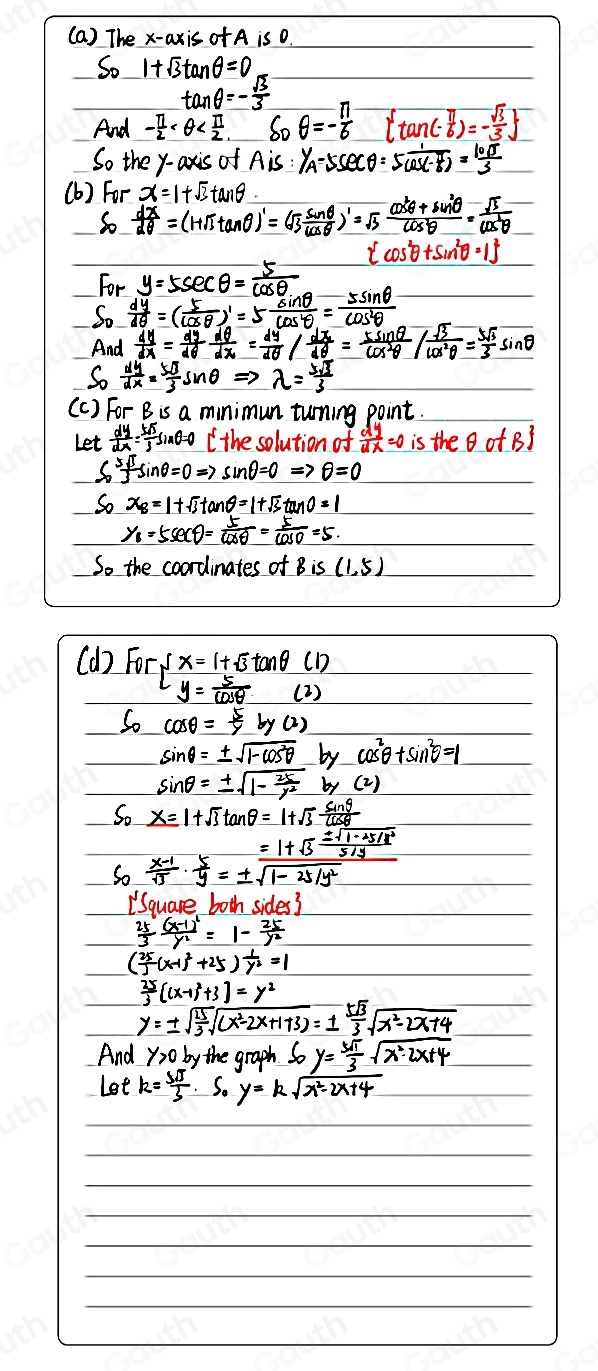 (a) The x-axis of A is 0.
So 1+√3tanθ=0
tanθ=-√3/3
And -π/2<θ<π/2. So θ=-π/6 {tan(-π/6)=-√3/3}
So the y-axis of A is: y_A=5secθ=5 1/cos(-π/6)=10√3/3
(b) For x=1+√3tanθ.
So dx/dθ=(1+√3tanθ)'=(√3 sinθ/cosθ)'=√3 (cos²θ+sin²θ)/cos²θ=√3/cos²θ
{cos²θ+sin²θ=1}
For y=5secθ=5/cosθ
So dy/dθ=(5/cosθ)'=5 sinθ/cos²θ=5sinθ/cos²θ
And dy/dx=dy/dθ dθ/dx=dy/dθ / dx/dθ=5sinθ/cos²θ / √3/cos²θ=5√3/3 sinθ
So dy/dx=5√3/3 sinθ => λ=5√3/3
(c) For B is a minimun turning point.
Let dy/dx=5√3/3 sinθ=0 {the solution of dy/dx=0 is the θ of B}
So 5√3/3 sinθ=0 => sinθ=0 => θ=0
So x_B=1+√3tanθ=1+√3tan0=1
y_B=5secθ=5/cosθ=5/cos0=5.
So the coordinates of B is (1,5)
(d) For { x=1+√3tanθ (1)
y=5/cosθ. (2)
So cosθ=5/y by (2)
sinθ=±√(1-cos²θ) by cos²θ+sin²θ=1
sinθ=±√(1-25/y²) by (2)
So x=1+√3tanθ=1+√3 sinθ/cosθ
=1+√3 ±√(1-25/y²)/(5/y)
So (x-1)/√3 · 5/y=±√(1-25/y²)
{Square both sides}
25/3 (x-1)²/y²=1-25/y²
(25/3(x-1)²+25)1/y²=1
25/3[(x-1)²+3]=y²
y=±√(25/3)√(x²-2x+1+3)=±5√3/3 √(x²-2x+4)
And y>0 by the graph So y=5√3/3 √(x²-2x+4)
Let k=5√3/3. So y=k√(x²-2x+4)